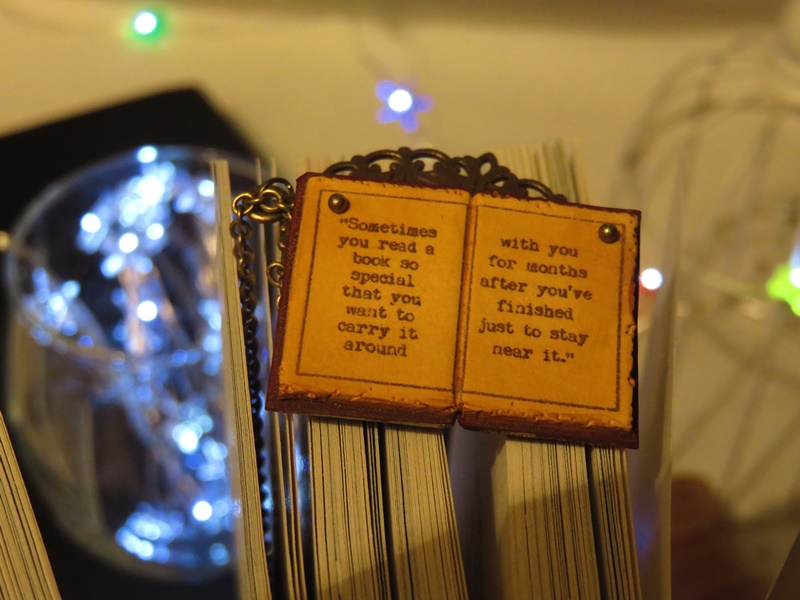 "Sometimes
you read a
book so
special
that you
want to
carry it
around
with you
for months
after you've
finished
just to stay
near it."